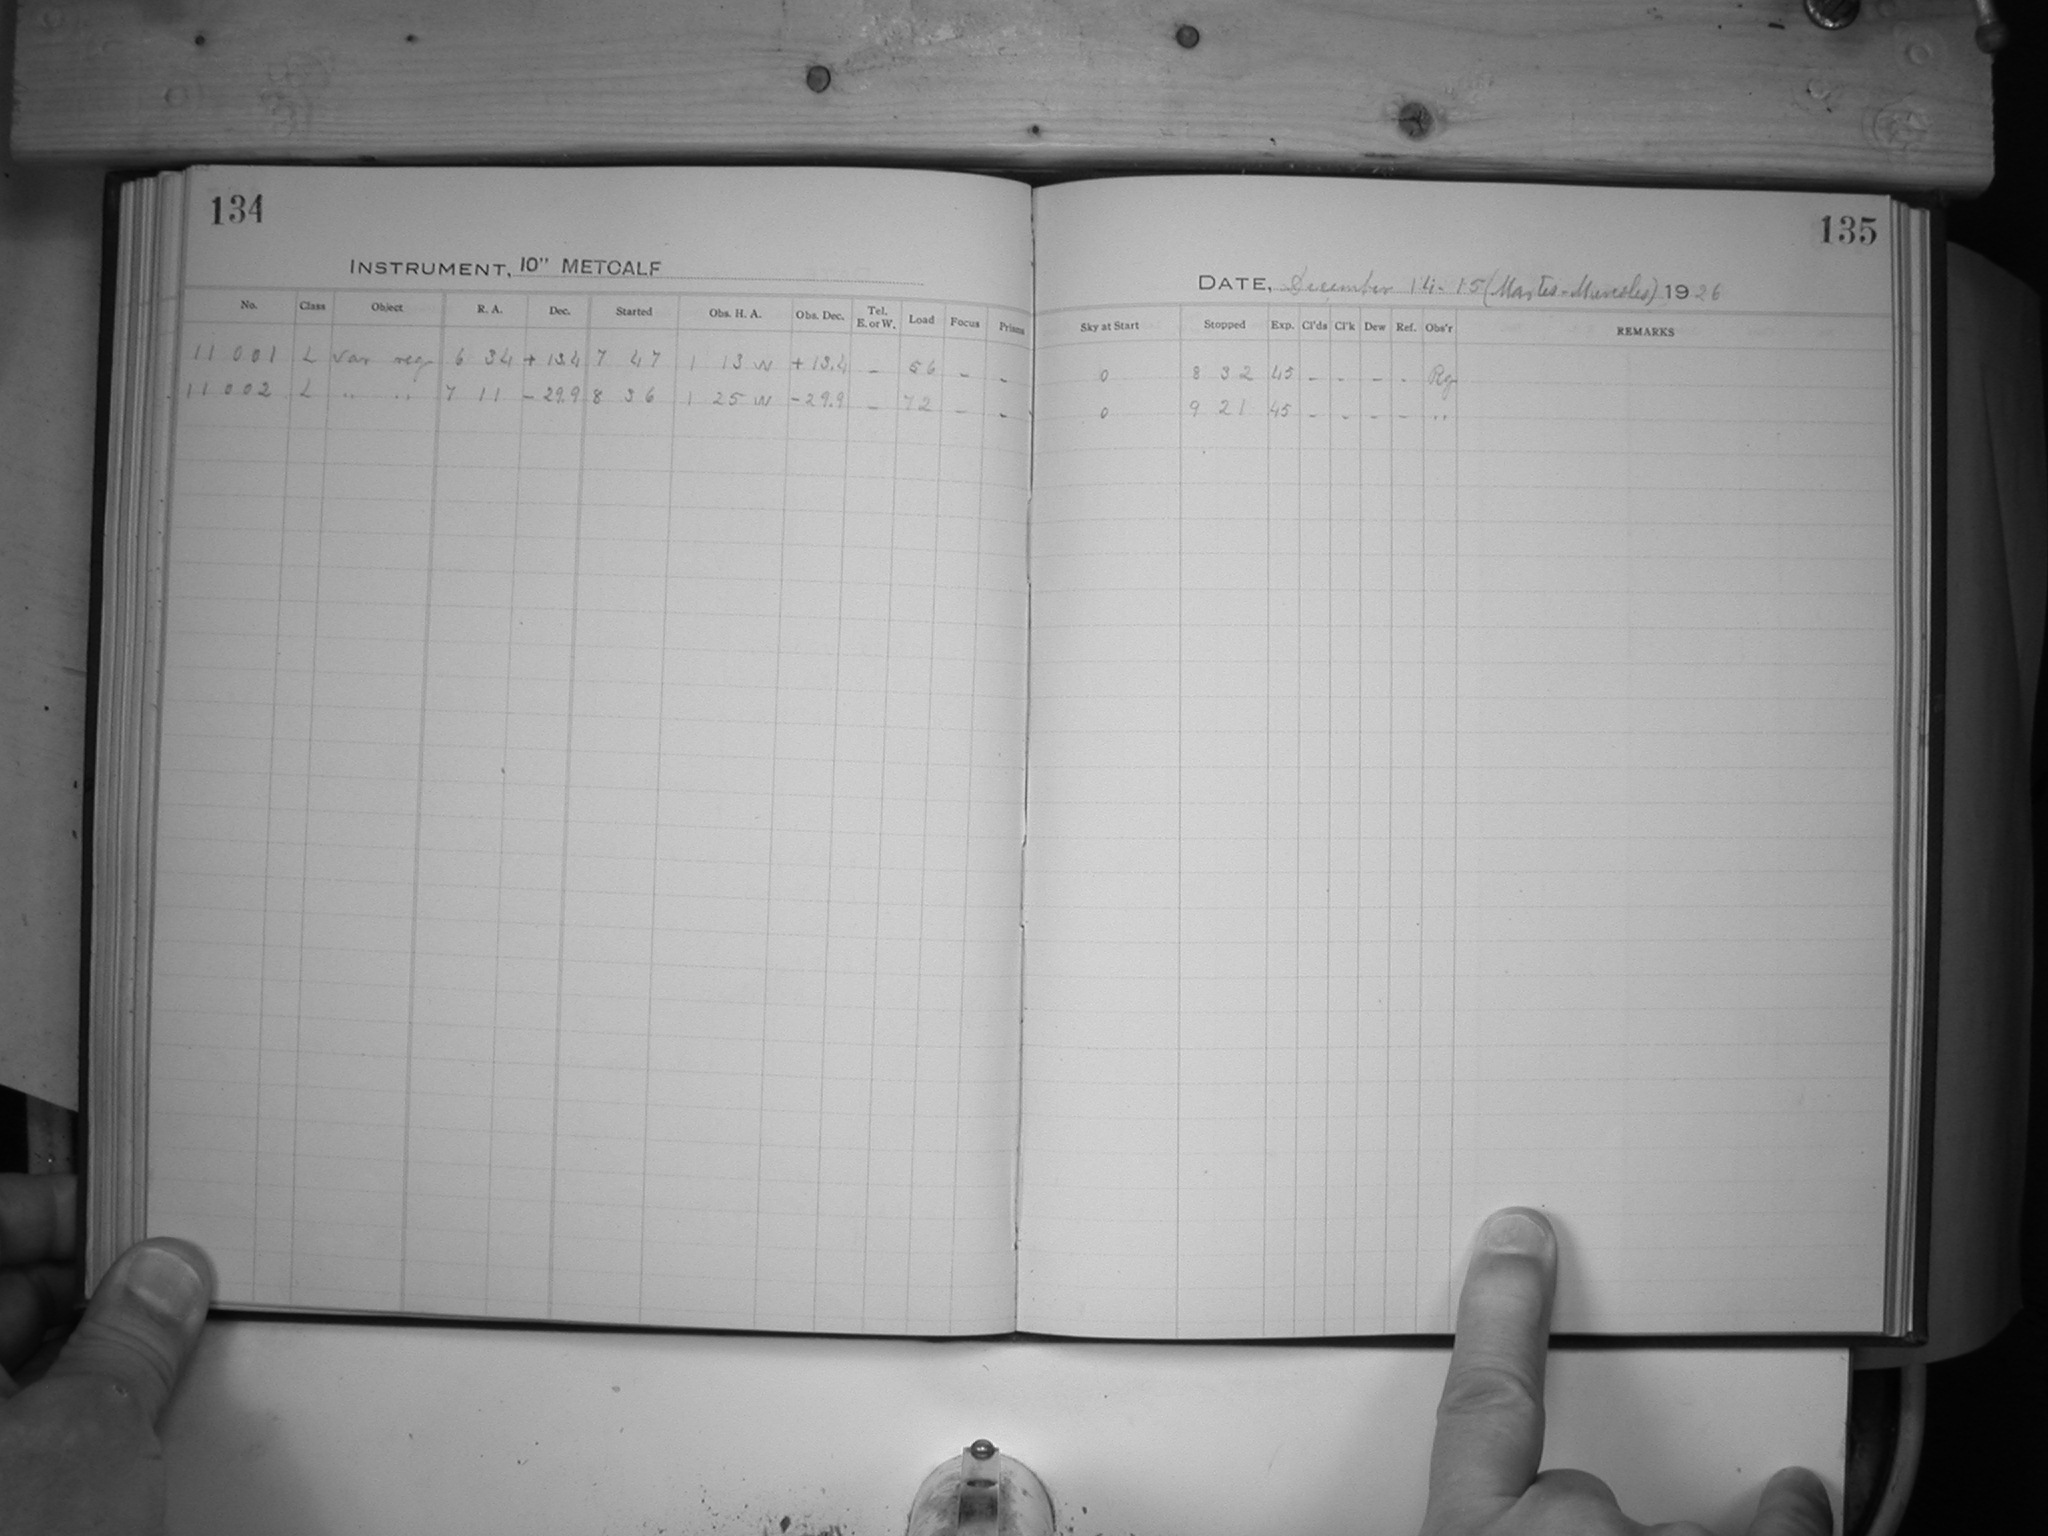 134
INSTRUMENT, 10" METCALF
No. Class Object R. A. Dec. Started Obs. H. A. Obs. Dec. Tel. E. or W. Load Focus Prisms
11 001 L var reg 6 34 + 13.4 7 47 1 13 W + 13.4 - 56 - -
11 002 L " " 7 11 - 29.9 8 36 1 25 W - 29.9 - 72 - -
135
DATE, December 14-15 (Martes-Miercoles) 1926
Sky at Start Stopped Exp. Cl'ds Cl'k Dew Ref. Obs'r REMARKS
0 8 32 45 - - - - Rg
0 9 21 45 - - - - "